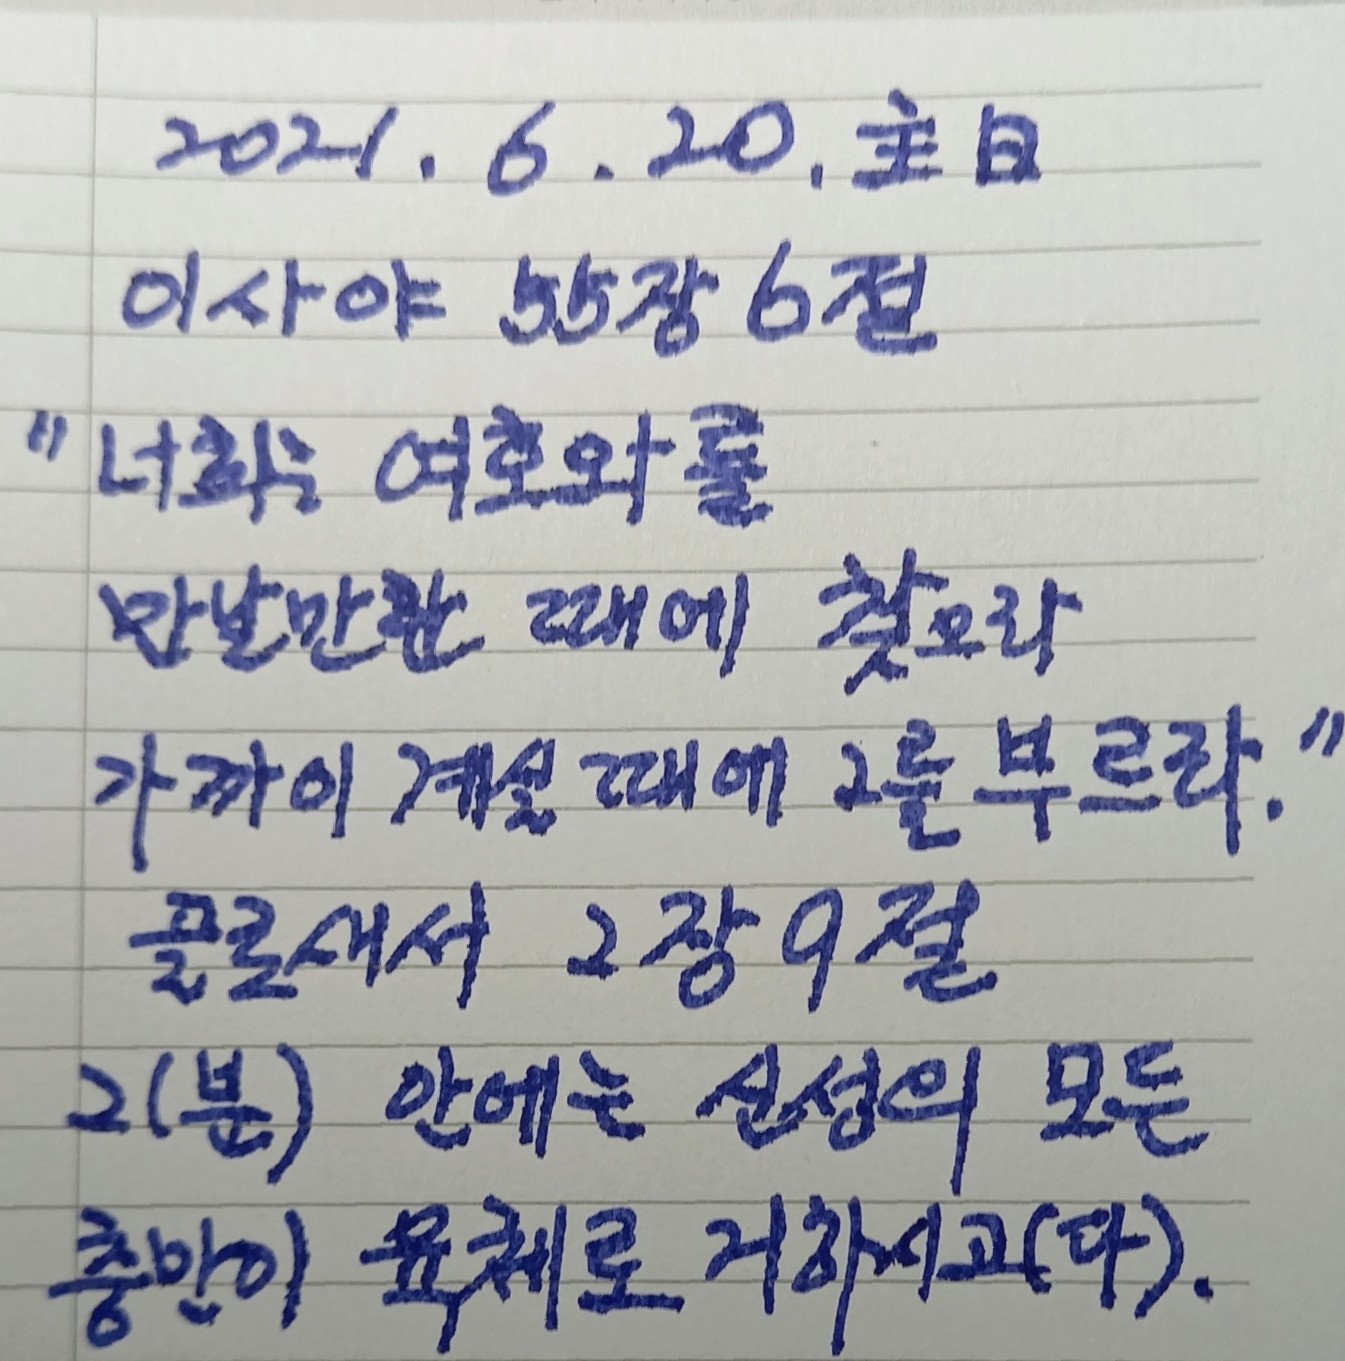 2021. 6. 20. 主日
이사야 55장 6절
"너희는 여호와를
만날만한 때에 찾으라
가까이 계실 때에 그를 부르라."
골로새서 2장 9절
그(분) 안에는 신성의 모든
충만이 육체로 거하시고(다).